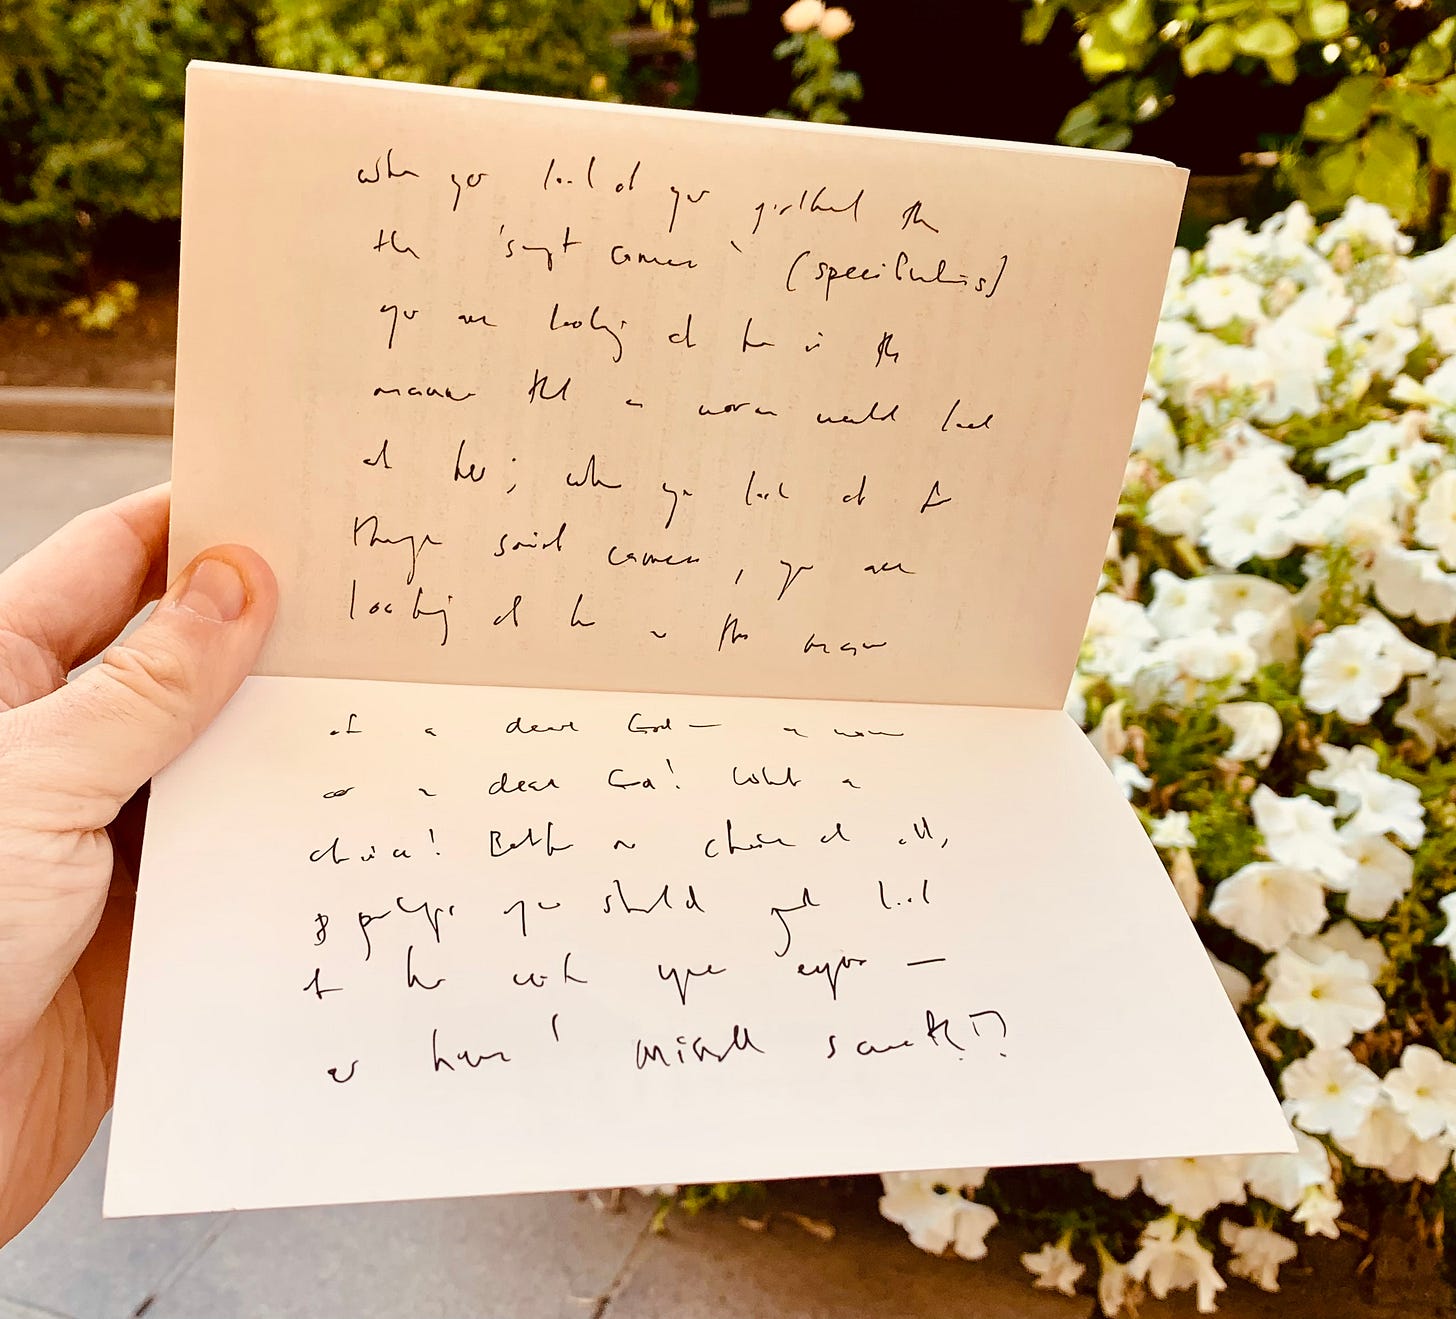 when you look at your girlfriend
the camera (specifications)
you are looking at her in the
manner that a worm would look
at her; when you look at her
through camera, you are
looking at her in the manner
of a dead God — a worm
or a dead God! What a
choice! Better no choice at all,
perhaps you should just look
at her with your eyes —
or haven't